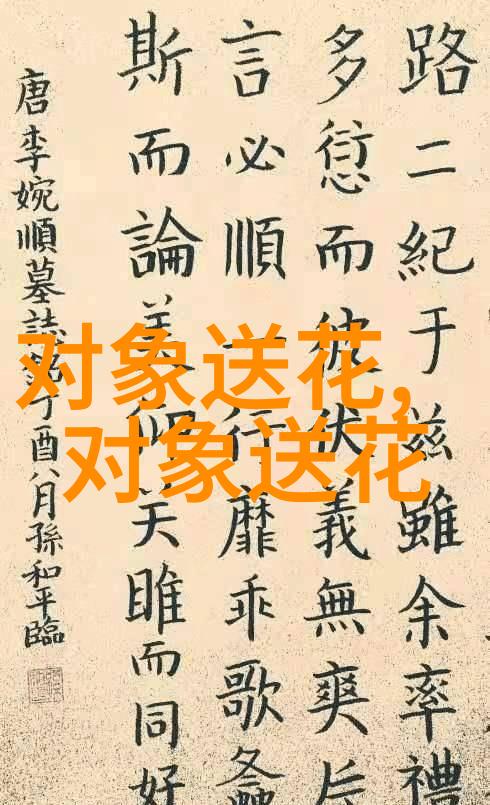 路二紀于兹雖余率禮
多愆而彼伏義無爽
言必順一行靡乖歌螽
斯而論美仰关雎而同好
唐李婉順墓誌銘丁酉八月孫和平臨
对象送花,
对象送花